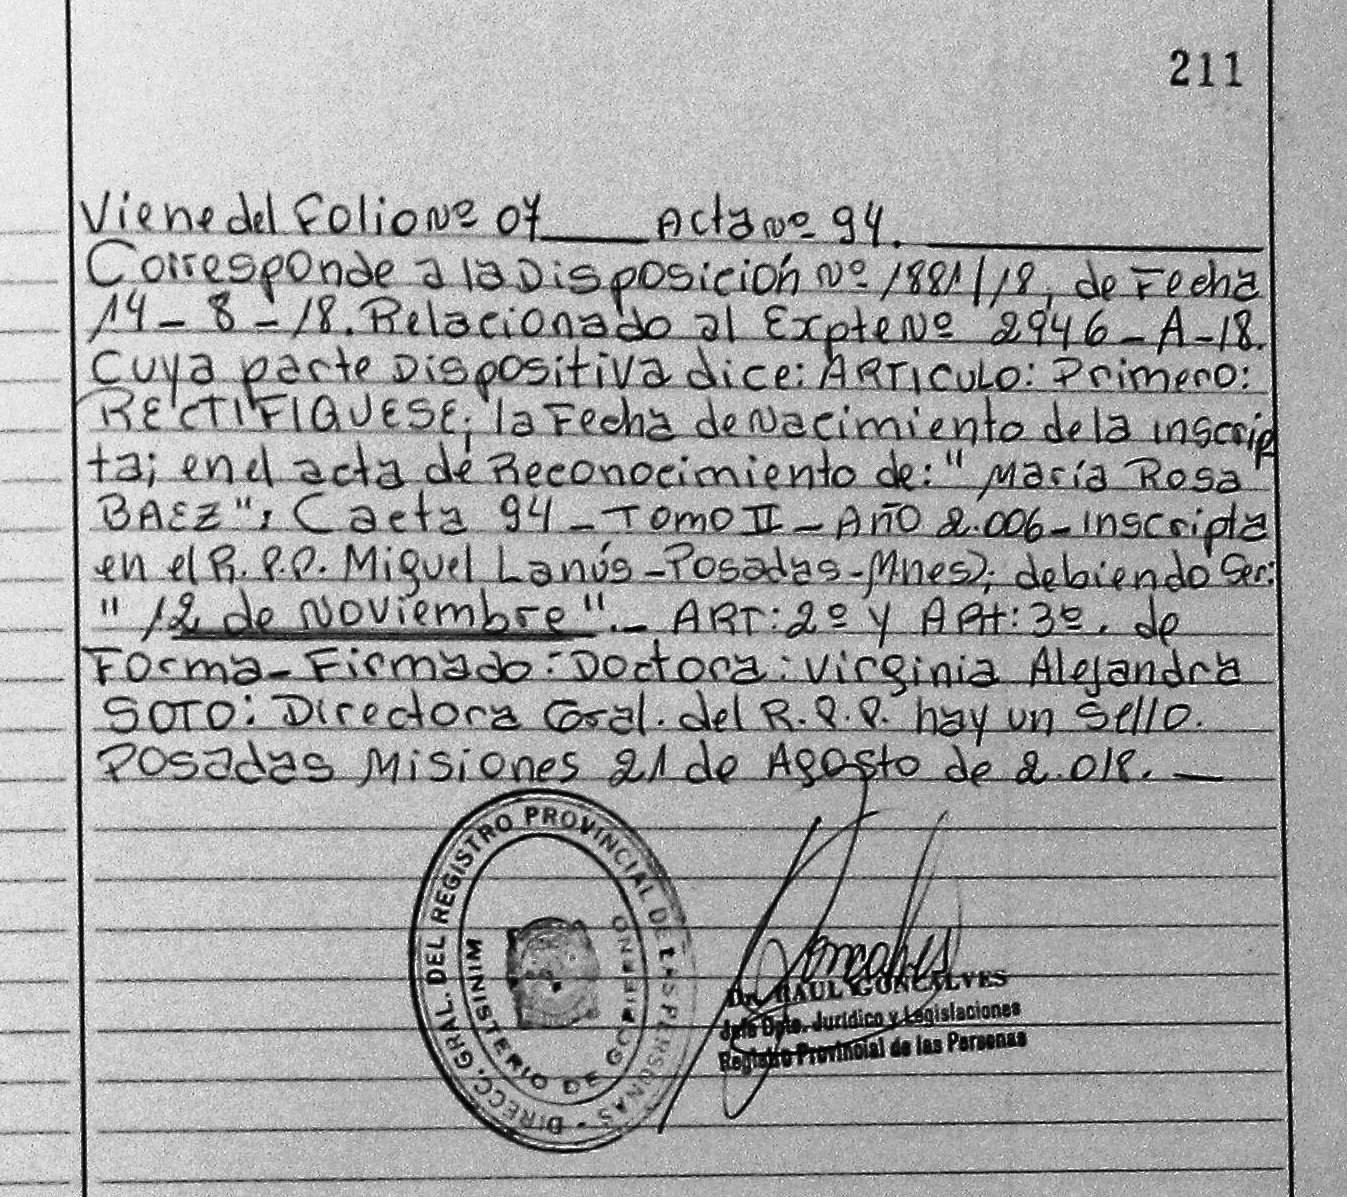 211
Viene del Folio Nº 07 Acta Nº 94.
Corresponde a la Disposición Nº 1881/18, de Fecha
14-8-18. Relacionado al Expte Nº 2946-A-18.
Cuya parte Dispositiva dice: ARTICULO: Primero:
RECTIFIQUESE; la Fecha de Nacimiento de la inscrip
ta; en el acta de Reconocimiento de: "María Rosa
BAEZ", (acta 94-Tomo II-Año 2.006-Inscripta
en el R.P.P. Miguel Lanús-Posadas-Mnes); debiendo Ser:
"12 de Noviembre".- ART: 2º y ART: 3º, de
Forma-Firmado: Doctora: Virginia Alejandra
SOTO: Directora Gral. del R.P.P. hay un Sello.
Posadas Misiones 21 de Agosto de 2.018.-
DIRECC. GRAL. DEL REGISTRO PROVINCIAL DE LAS PERSONAS -
MINISTERIO DE GOBIERNO
Dr. RAUL GONCALVES
Jefe Dpto. Jurídico y Legislaciones
Registro Provincial de las Personas